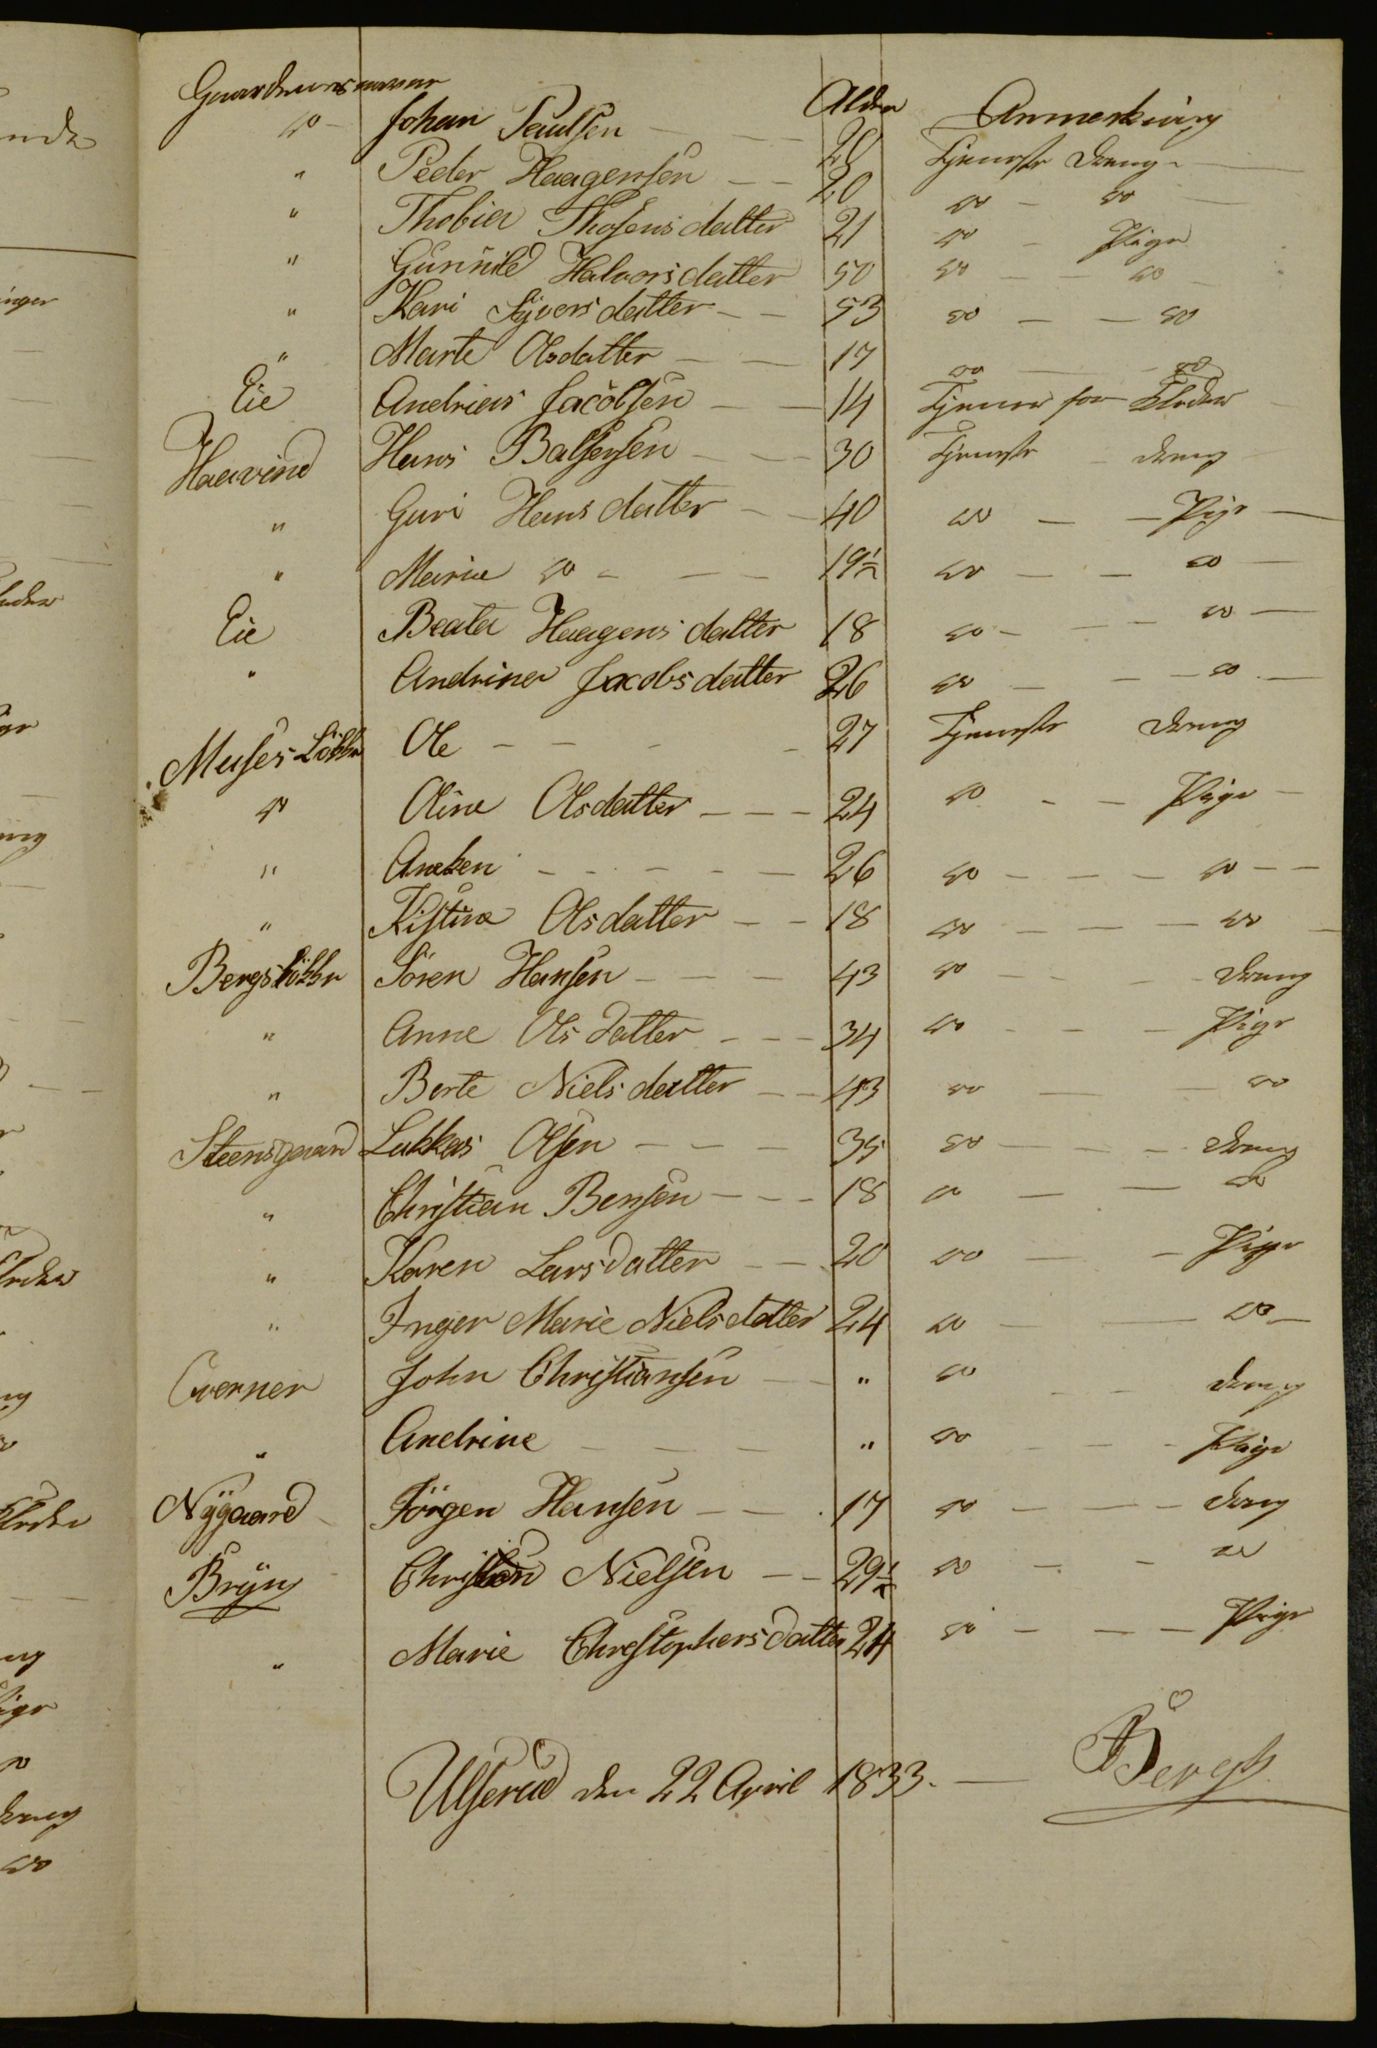 Gaardenes navne Alder Anmerkning
do - Johan Paulsen - - 28 Tjeneste Dreng -
" Peder Haagensen - - 20 do - do -
" Thobia Thosens datter 21 do - Pige
" Gunnild Halvors datter 50 do - - do -
" Kari Syvers datter - - 53 do - - do
" Marte Olsdatter - - 17 do - - do
Eie Andreas Jacobsen - - 14 Tjener for Kleder -
Haavind Hans Balsersen - - 30 Tjeneste - Dreng
" Guri Hans datter - - 40 do - - Pige -
" Maria do - - - 19½ do - - do -
Eie Beata Haagens datter 18 do - - - do -
" Andrina Jacobs datter 26 do - - - do -
Muses Løkke Ole - - - - 27 Tjeneste Dreng
do Oline Olsdatter - - - 24 do - - Pige -
" Aneken - - - - - 26 do - - - do - -
" Kistine Olsdatter - - 18 do - - - do -
Bergsløkke Sören Hansen - - - 43 do - - - Dreng
" Anne Ols datter - - - 34 do - - - Pige
" Berte Niels datter - - 43 do - - do
Steensgaard Lukkas Olsen - - - 35 do - - - Dreng
" Christian Bensen - - - 18 do - - do
" Karen Larsdatter - - 20 do - - Pige
" Inger Marie Nielsdatter 24 do - - do -
Qverner John Christiansen - - " do - - Dreng
" Andrine - - - " do - - - Pige
Nÿgaard - Jörgen Hansen - - - 17 do - - - Dreng
Brÿn Christen Nielsen - - 29½ do - - do
" Marie Christophersdatter 24 do - - - Pige
Ulserud den 22 April 1833. - Bergh